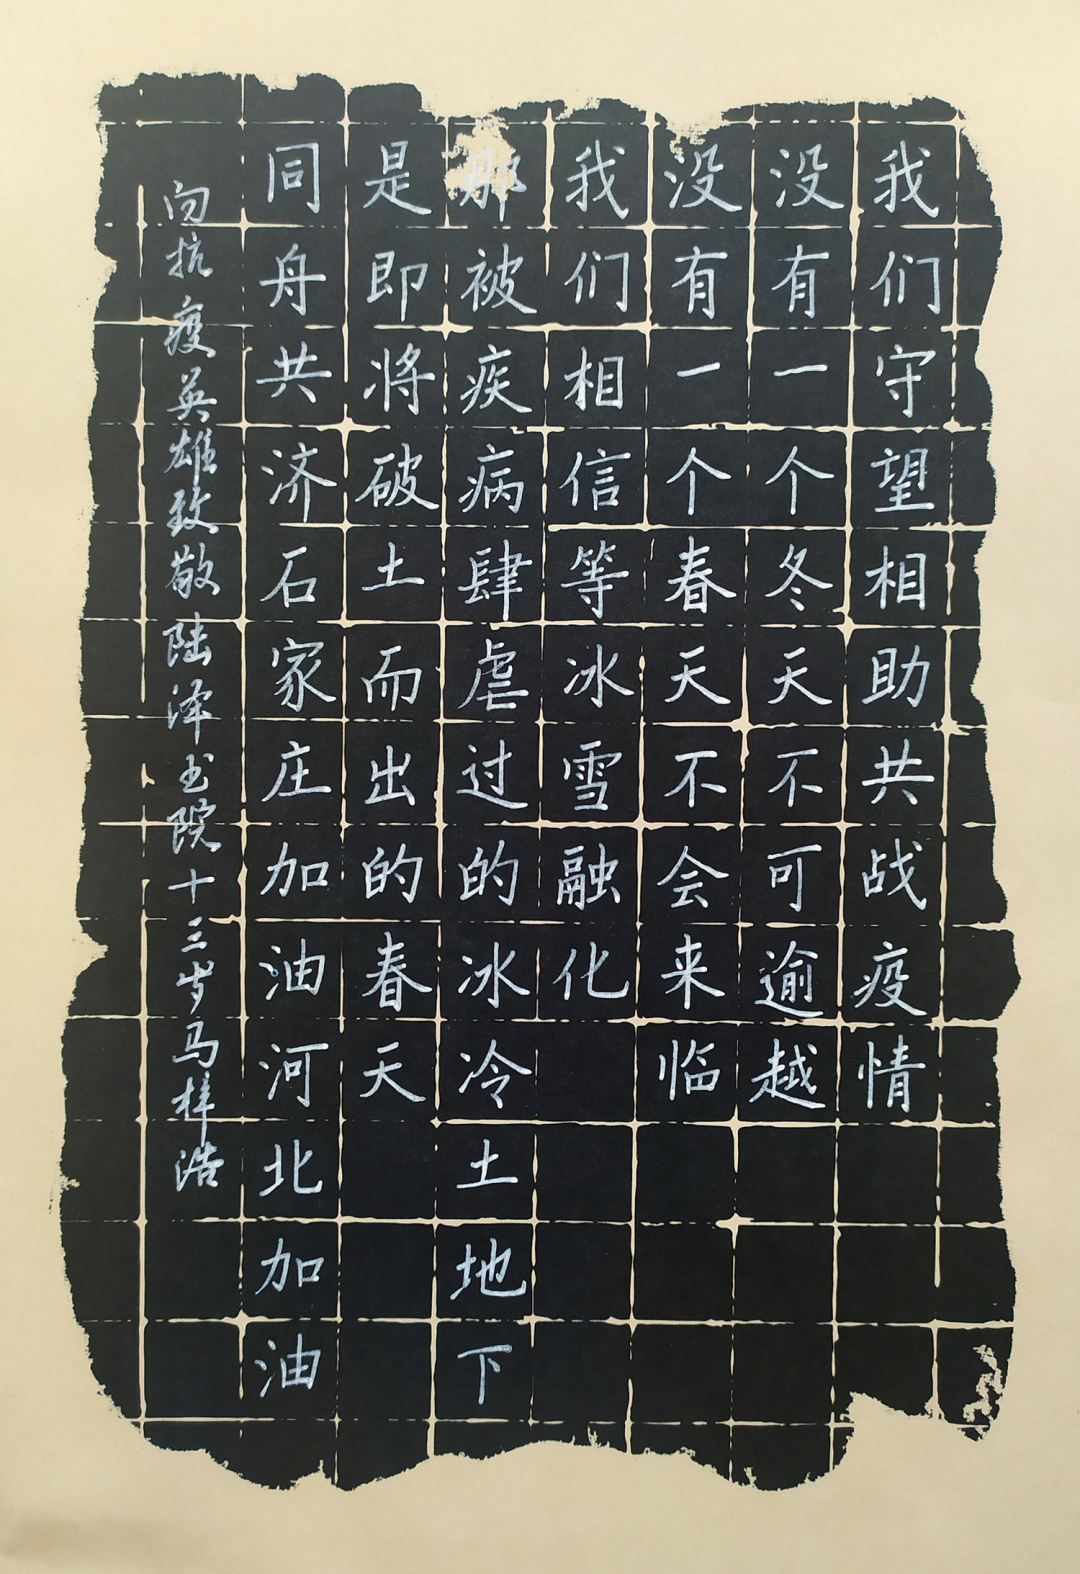 我们守望相助共战疫情
没有一个冬天不可逾越
没有一个春天不会来临
我们相信等冰雪融化
那被疾病肆虐过的冰冷土地下
是即将破土而出的春天
同舟共济石家庄加油河北加油
向抗疫英雄致敬陆泽书院十三岁马梓浩